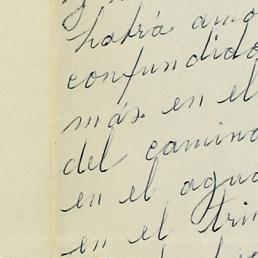 y
habrá amo
confundido
más en el
del camino
en el agua
en el tri